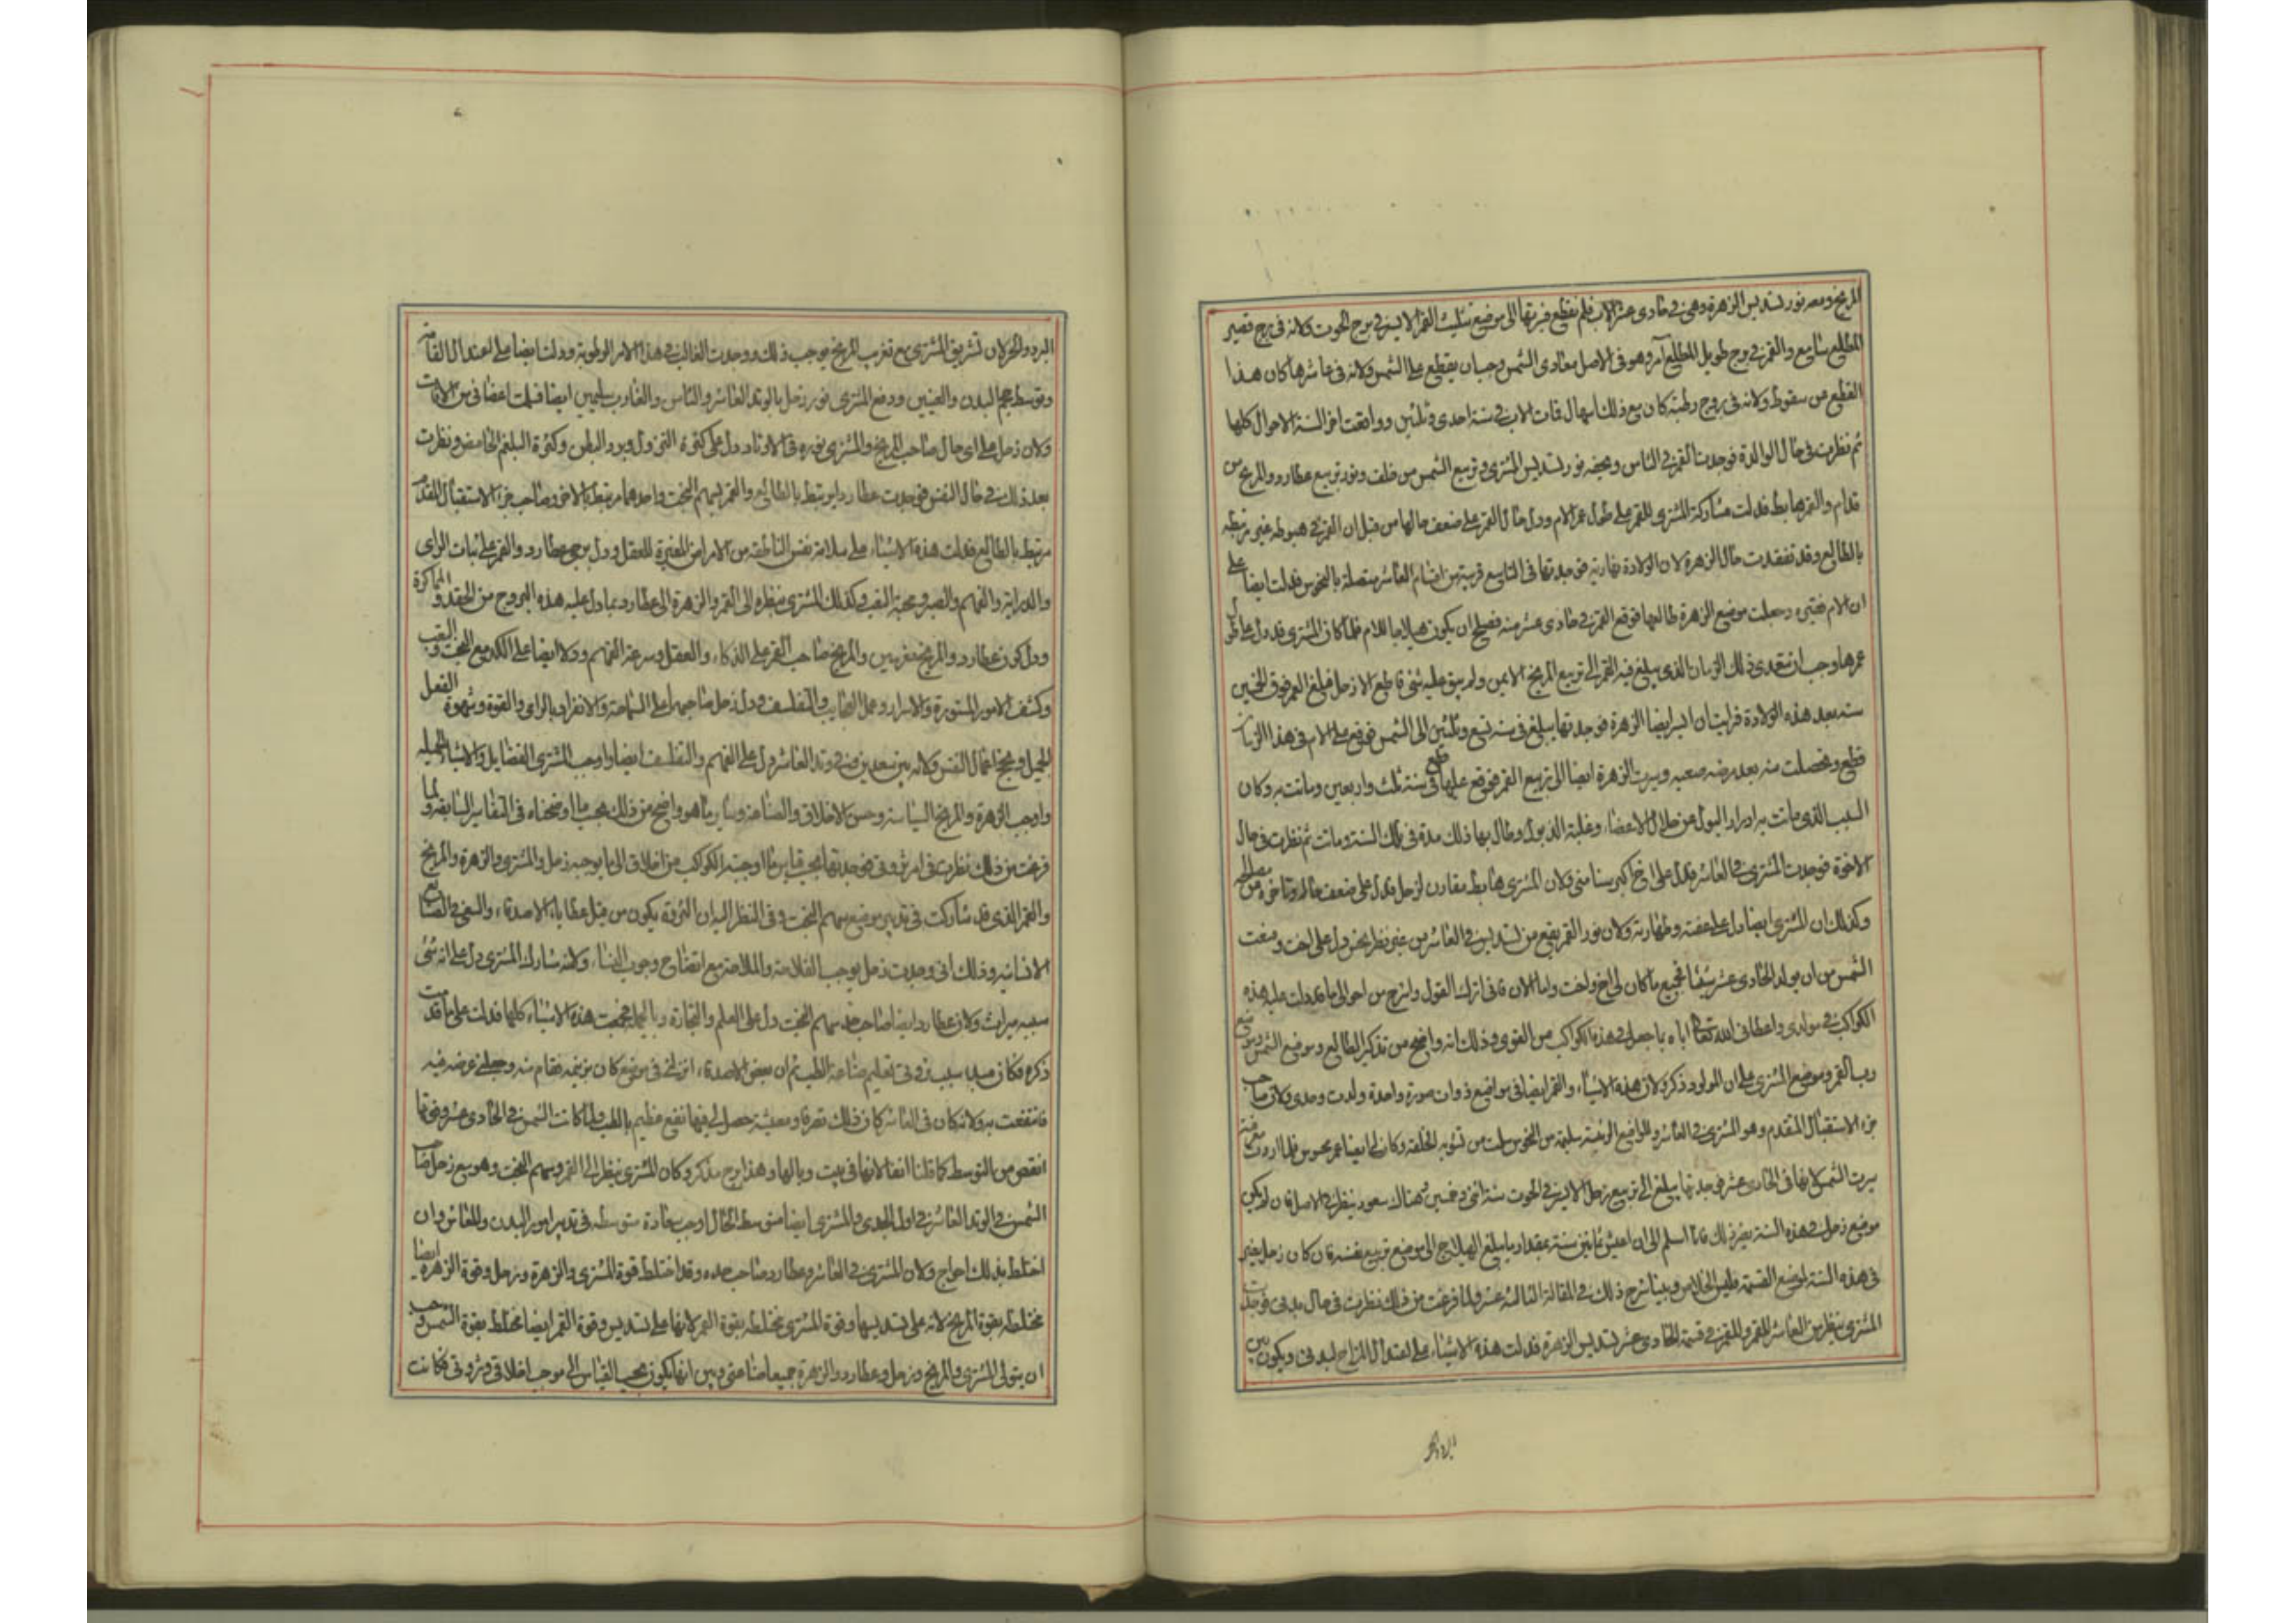 المريخ ومعه نور تسديس الزهرة وهي في حادى عشر الاب فلم نقطع فيرتها الى موضع تثليث القمر الايسر في برج الحوت ولانه في برج قصير
المطالع سابع والقمر في برج طويل المطالع آمر وهو في الاصل معادى الشمس وجب ان يقطع على الشمس ولانه في عاشرها كان هذا
القطع من سقوط ولانه في بروج رطبة كان مع ذلك اسهال فمات الاب في سنة احدى وثلثين ووافقت اخر السنة الاحوال كلها
ثم نظرت في حال الوالدة فوجدت القمر في الثامن ويحضه نور تسديس المشترى وتربيع الشمس من خلف ونور تربيع عطارد والمريخ من
قدام والقمر هابط فدلت مشاركة المشترى للقمر على طول عمر الام ودل حال القمر على ضعف حالها من قبل ان القمر في هبوطه غير مرتبط
بالطالع وقد تفقدت حال الزهرة لان الولادة نهارية فوجدتها في التاسع قريبة من اقسام العاشر متصلة بالنحوس فدلت ايضا على
ان الام فقيره وجعلت موضع الزهرة طالعها فوقع القمر في حادى عشر منه فصلح ان يكون هيلاجا للام فلما كان المشترى قد دل على طول
عمرها وجب ان تتعدى ذلك الزمان الذى يبلغ فيه القمر الى تربيع المريخ الايمن ولم يبق عليه شئ قاطع الا زحل فبلغ العمر فوق الخمسين
سنه بعد هذه الولادة فرايت ان اسير ايضا الزهرة فوجدتها يبلغ في سنه تسع وثلثين الى الشمس فوقع على الام في هذا الزمان
قطع وتخلصت منه بعد مرضه صعبه وسيرت الزهرة ايضا الى تربيع القمر فوقع عليها قطع في سنة ثلث واربعين وماتت به وكان
السبب الذى ماتت به ادرار البول عن خلال الاعضاء وغلبة الذبول وطال بها ذلك مدة في تلك السنة وماتت ثم نظرت في حال
الاخوة فوجدت المشترى في العاشر فدل على اخ اكبر سنا منى ولان المشترى هابط مقارن لزحل فدل على ضعف حاله وتاخره عن مصالحه
وكذلك ان المشترى ايضا دل على عفته وطهارته ولان نور القمر يقع من تسديس في العاشر من غير نظر نحس دل على اخت ومنعت
الشمس من ان يولد الحادى عشر شيئا فجميع ما كان لى اخ واخت واما الان فانى اترك القول واشرح من احوالى ما قد دلت عليه هذه
الكواكب في مولدى واعطانى الله تعالى اياه بما جعل في هذه الكواكب من القوى وذلك انه واضح من تذكير الطالع وموضع الشمس وموضع
رب القمر وموضع المشترى على ان المولود ذكر ولان هذه الاشياء والقمر ايضا في مواضع ذوات صورة واحدة ولدت وحدى ولان صاحب
جزء الاستقبال المتقدم وهو المشترى في العاشر والمواضع الرئيسة سليمة من النحوس سلمت من تشويه الخلقة وكان لما يضا عمر نحوس فلما اردت معرفته
سيرت الشمس لانها في الحادى عشر فوجدتها يبلغ الى تربيع زحل الايسر في الحوت سنة اثنى وخمسين وهناك سعود ينظر في الاصل فان لم يكن
موضع زحل في هذه السنة يضر ذلك فانا اسلم الى ان اعيش ثمانين سنة بمقدار ما يبلغ الهيلاج الى موضع تربيع نفسه فان كان زحل يضر
في هذه السنة لموضع القسمة فليس الخلاص وبينا شرح ذلك في المقالة الثالثه عشر ولما فرغت من ذلك نظرت في حال بدنى فوجدت
المشترى ينظر من العاشر للقمر والقمر في قسمة الحادى عشر تسديس الزهرة فدلت هذه الاشياء على اعتدال المزاج لبدنى ويكون بين
البرد
البرد والحر لان تشريق المشترى مع تغريب المريخ يوجب ذلك ووجدت الغالب في هذا الامر الرطوبة ودلت ايضا على اعتدال القامة
وتوسط حجم البدن والعينين ودفع المشترى نور زحل بالوتد العاشر والثامن والغارب سليمين ايضا فسلمت اعضائى من الافات
ولان زحل على اى حال صاحب المريخ والمشترى بنوره في الاوتاد دل على كثرة النزول وبرد البطن وكثرة البلغم الحامض ونظرت
بعد ذلك في حال النفس فوجدت عطارد ايرتبط بالطالع والقمر بسهم البخت واحدهما مرتبط بالاخر وصاحب جزء الاستقبال المقدم
مرتبط بالطالع فدلت هذه الاشياء على سلامة نفس الناطقة من الامراض المغيرة للعقل ودل برجى عطارد والقمر على ثبات الراى
والدراية والفهم والصبر ومحبة التعب وكذلك المشترى ينظره الى القمر والزهرة الى عطارد بما دل عليه هذه البروج من الحقد والمماكرة
ودل كون عطارد والمريخ مغربين والمريخ صاحب القمر على الذكاء والعقل وسرعة الفهم ودلا ايضا على الكد مع البحث والتعب
وكشف الامور المستورة والاسرار وعمل العجايب والتفلسف ودل زحل صاحبهما على السماحة والانفراد بالراى والقوة وشهوة الفعل
الجميل وينجح اعمال النفس ولانه بين سعدين فهى وتد العاشر دل على الفهم والتفلسف ايضا واوجب المشترى الفضايل والاشياء الجميله
واوجب الزهرة والمريخ السياسة وحسن الاخلاق والصناعة وساير ما هو واضح من ذلك بحسب ما اوضحناه في التفاسير السابقه ولما
فرغت من ذلك نظرت في امر ثروتى فوجدتها بحسب قياس ما اوجبته الكواكب من اخلاقى الى ما يوجبه زحل والمشترى والزهرة والمريخ
والقمر الذى قد شاركت في تدبير موضع سهم البخت وفي النظر اليه ان الثروة يكون من قبل عطايا الاصدقاء والسعى في الصنايع
الانسانيه وذلك انى وجدت زحل يوجب الفلاحة والملاحة مع اتضاح وجوب البناء ولانه شارك المشترى دل على انه شئ
سببه ميراث ولان عطارد ايضا صاحب حد سهم البخت دل على العلم والتجارة وبالجملة فجمعت هذه الاشياء كلها فدلت على ما قد تمت
ذكره فكان مبدا سبب ثروتى تعليم صناعة الطب ثم ان بعض الاصدقاء انزلنى في موضع كان بزيجه فقام منه وجعلنى عوضه فيه
فانتفعت به ولانه كان في العاشر كان ذلك تصرفا ومعيشة حصل لى فيها نفع عظيم بالطب ولما كانت الشمس في الحادى عشر وفى تها
انقص من التوسط كما قلنا انفا لانها في بيت وبالها وهذا برج مذكر وكان المشترى ينظر الى القمر وسهم البخت وهو مع زحل صاحب
الشمس في الوتد العاشر في اول الجدى والمشترى ايضا متوسط الحال اوجب سعادة متوسطه في تدبير امور البدن والمعاش وان
اختلط بذلك احواج ولان المشترى في العاشر وعطارد صاحب حده وقد اختلط قوة المشترى والزهرة وزحل وقوة الزهرة ايضا
مختلطه بقوة المريخ لانه على تسديسها وقوة المشترى مختلطه بقوة القمر لانها على تسديس وقوة القمر ايضا مختلط بقوة الشمس وجب
ان يتولى المشترى والمريخ وزحل وعطارد والزهرة جميعا صناعتى وبين انها يكون بحسب القياس الى موجب اخلاقى وثروتى فكانت